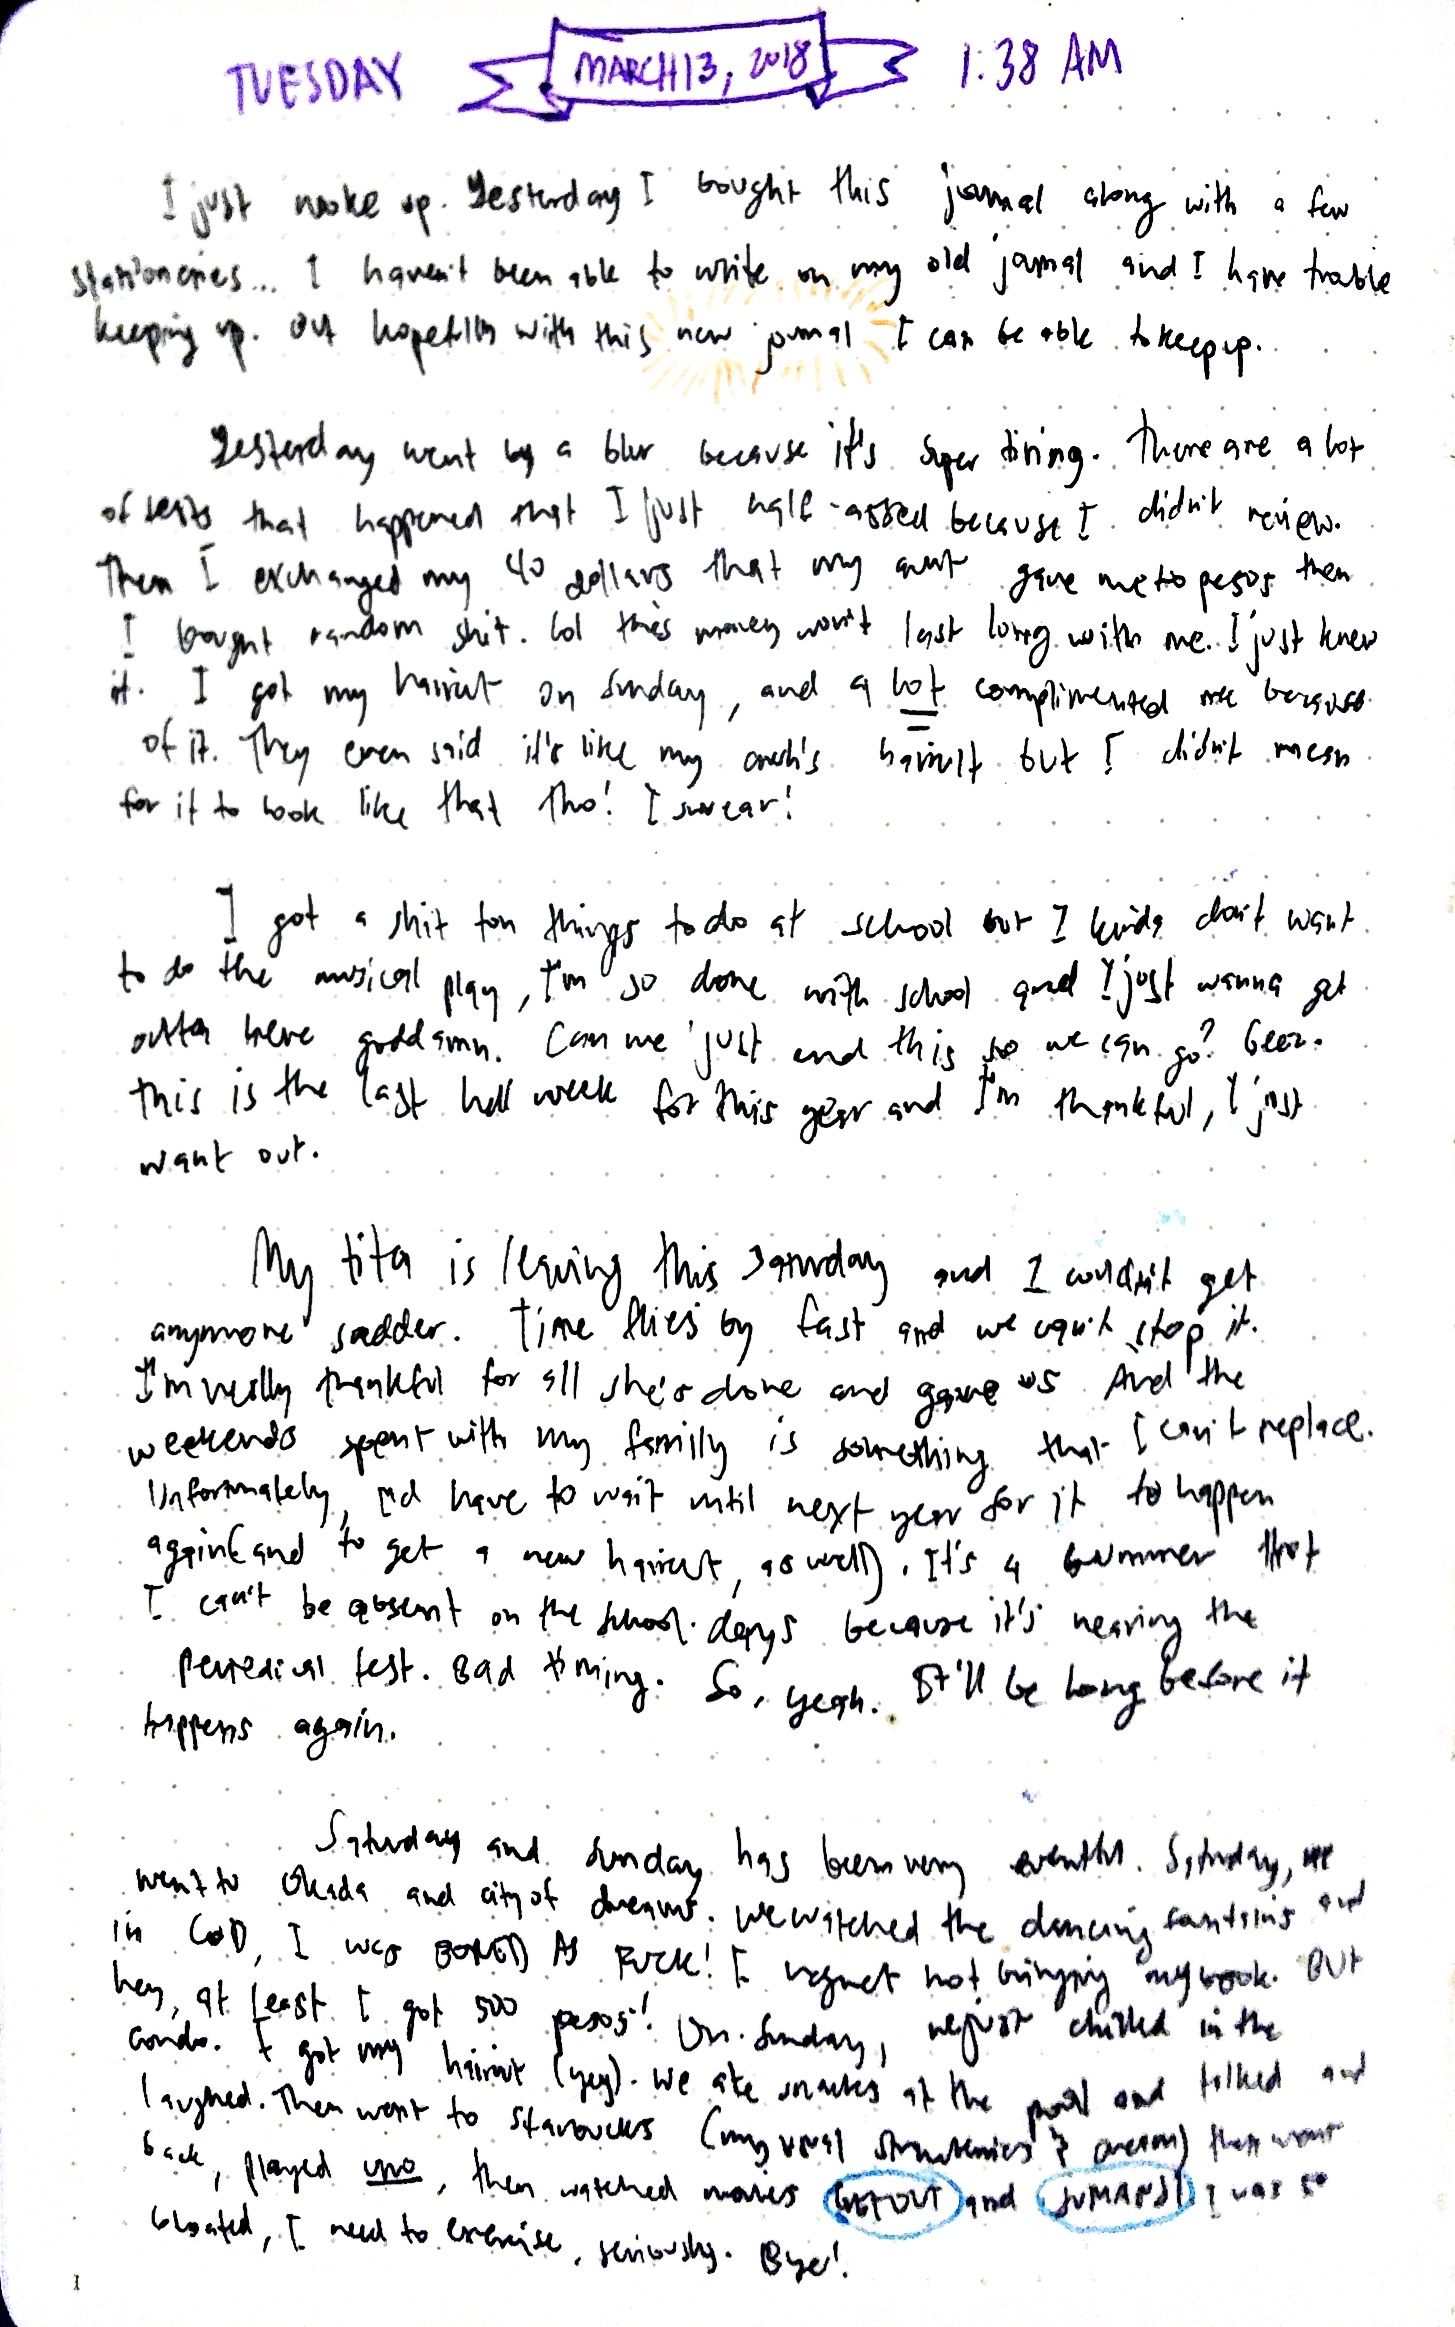 TUESDAY MARCH 13, 2018 1:38 AM
I just woke up. Yesterday I bought this journal along with a few
stationeries... I haven't been able to write on my old journal and I have trouble
keeping up. But hopefully with this new journal I can be able to keep up.
Yesterday went by a blur because it's super tiring. There are a lot
of tests that happened that I just half-assed because I didn't review.
Then I exchanged my 40 dollars that my aunt gave me to pesos then
I bought random shit. lol this money won't last long with me. I just knew
it. I got my haircut on Sunday, and a lot complimented me because
of it. They even said it's like my haircut but I didn't mean
for it to look like that tho! I swear!
I got a shit ton things to do at school but I kinda don't want
to do the musical play, I'm so done with school and I just wanna get
outta here goddamn. Can we just end this so we can go? Geez.
This is the last hell week for this year and I'm thankful, I just
want out.
My tita is leaving this Saturday and I couldn't get
anymore sadder. Time flies by fast and we can't stop it.
I'm really thankful for all she's done and gave us And the
weekends spent with my family is something that I can't replace.
Unfortunately, I'd have to wait until next year for it to happen
again (and to get a new haircut, as well). It's a bummer that
I can't be absent on the school days because it's nearing the
periodical test. Bad timing. So, yeah. It'll be long before it
happens again.
Saturday and Sunday has been very eventful. Saturday, we
went to Okada and city of dreams. We watched the dancing fountains and
in COD, I was BORED AS FUCK! I regret not bringing my book. But
hey, at least I got 500 pesos! On Sunday, we just chilled in the
condo. I got my haircut (yey). We ate snacks at the pool and talked and
laughed. Then went to Starbucks (my usual strawberries & cream) then went
back, played uno, then watched movies GET OUT and JUMANJI I was so
bloated, I need to exercise, seriously. Bye!
1